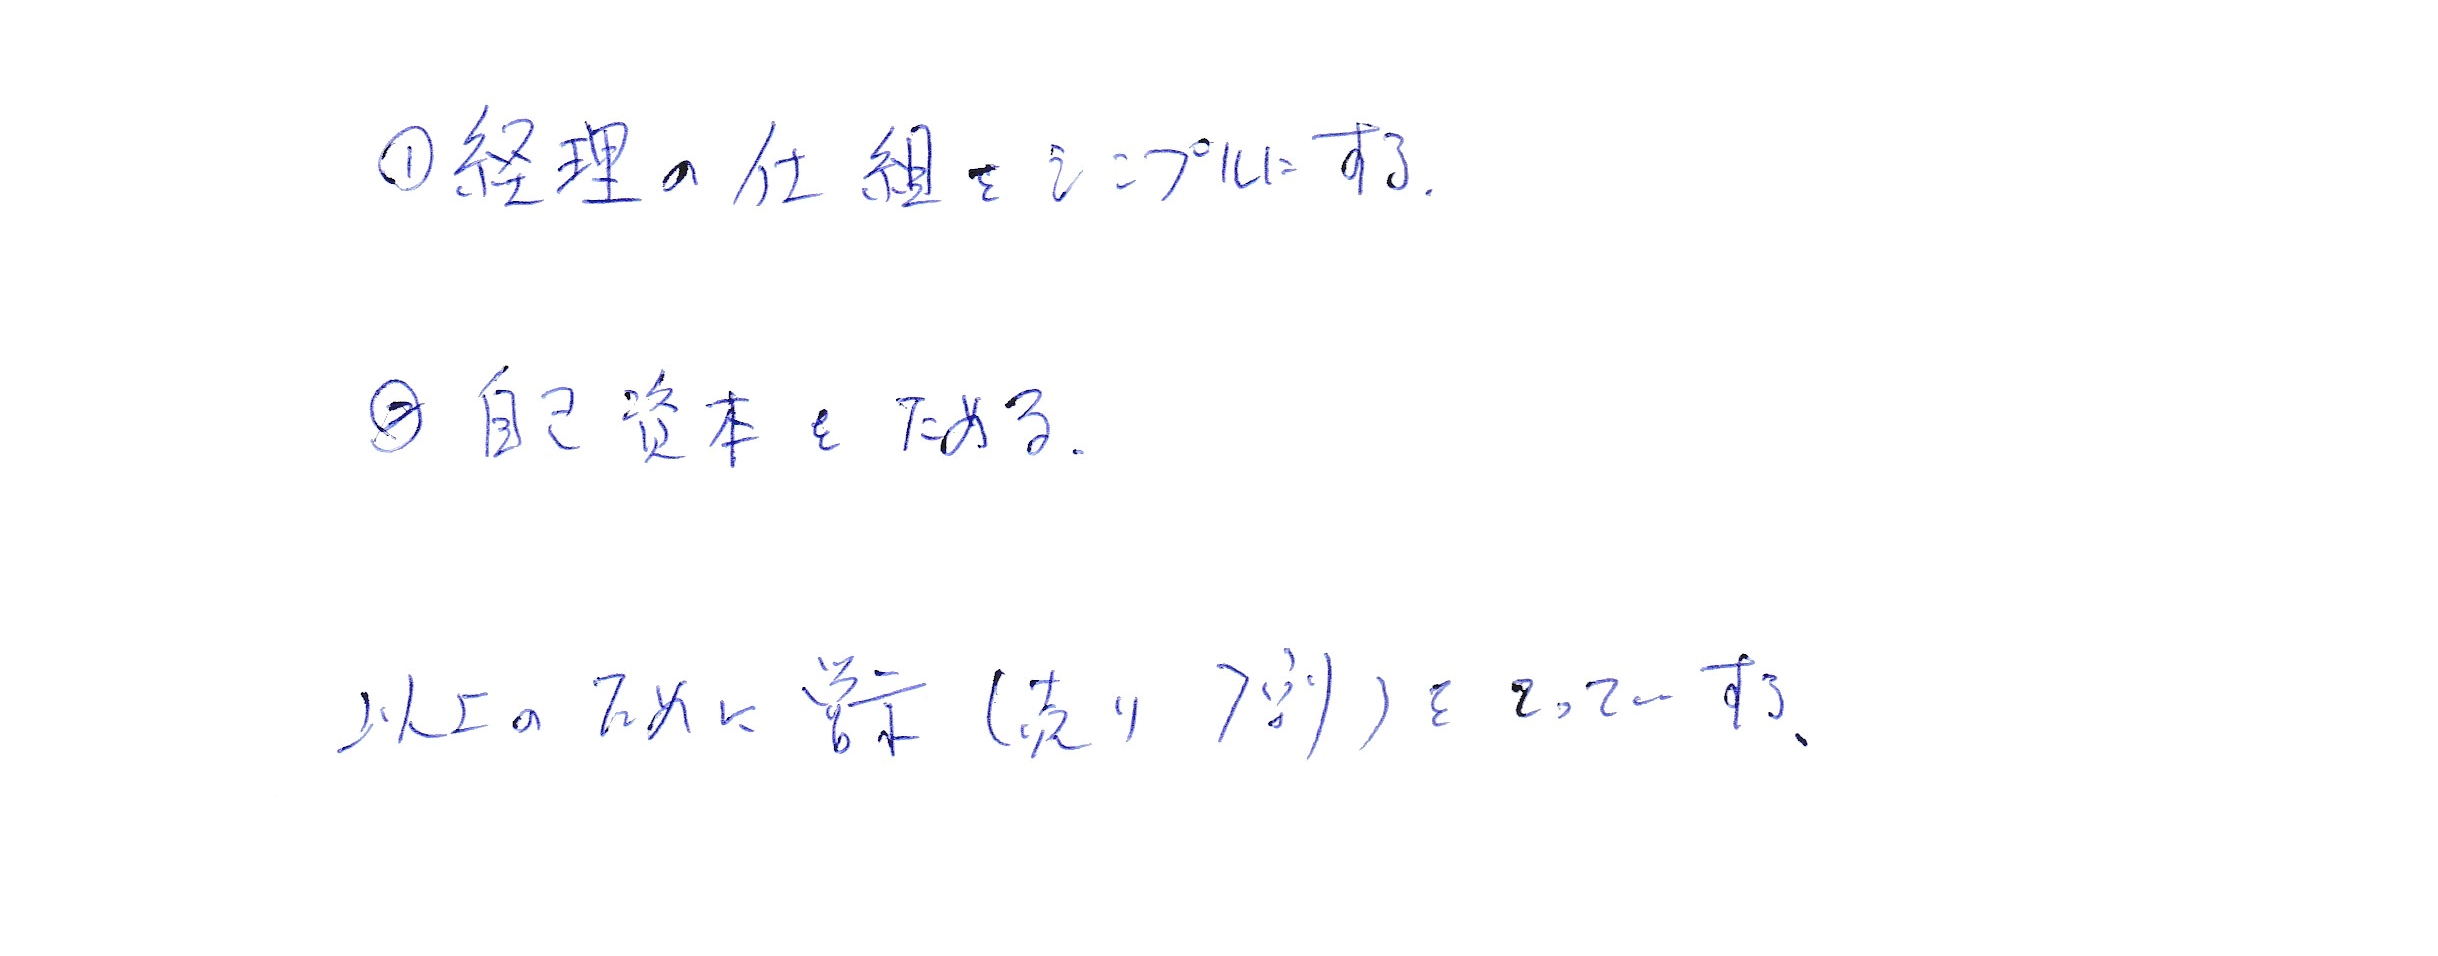 ①経理の仕組をシンプルにする.
②自己資本をためる.
以上のために営業(売り 7割)をとってする、